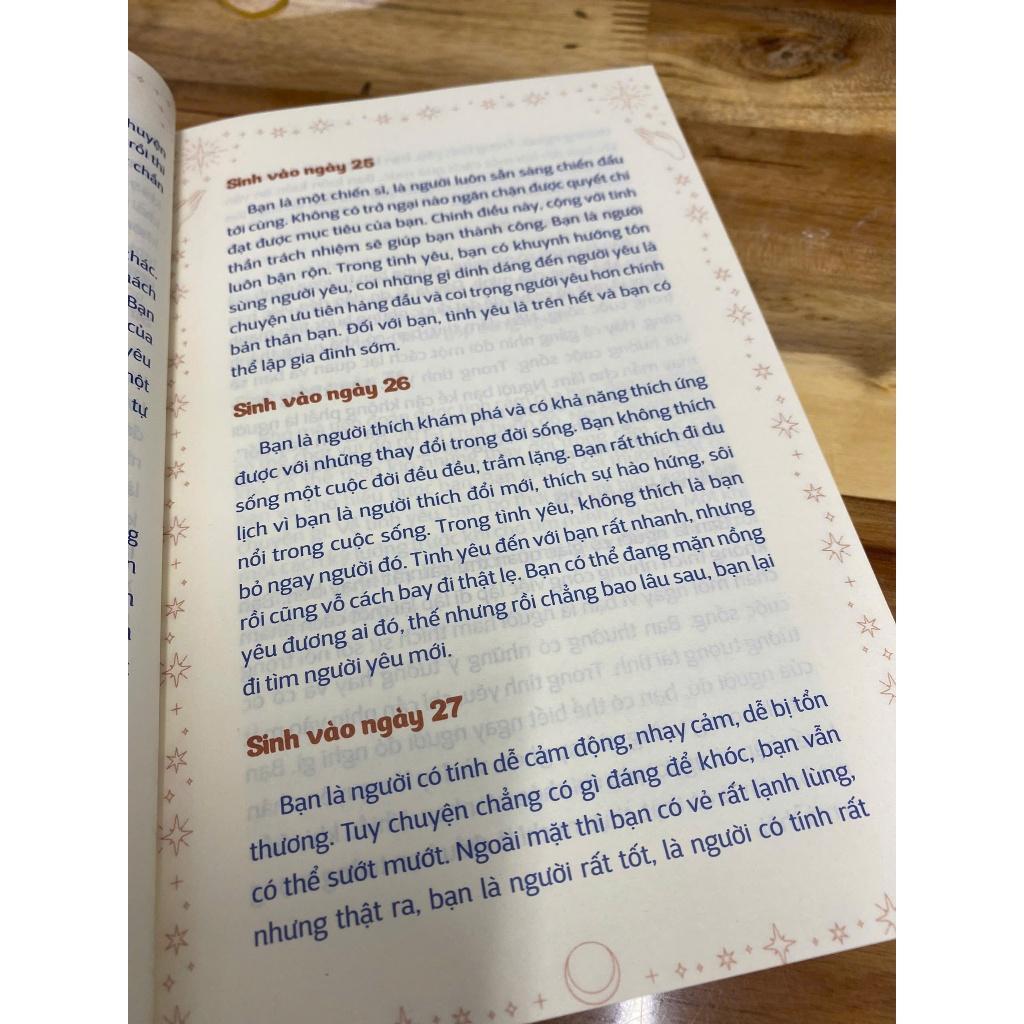 huyện
rồi thì
chấn
hác.
hách
Bạn
của
yêu
một
tự
Sinh vào ngày 25
Bạn là một chiến sĩ, là người luôn sẵn sàng chiến đấu
tới cùng. Không có trở ngại nào ngăn chặn được quyết chí
đạt được mục tiêu của bạn. Chính điều này, cộng với tinh
thần trách nhiệm sẽ giúp bạn thành công. Bạn là người
luôn bận rộn. Trong tình yêu, bạn có khuynh hướng tôn
sùng người yêu, coi những gì dính dáng đến người yêu là
chuyện ưu tiên hàng đầu và coi trọng người yêu hơn chính
bản thân bạn. Đối với bạn, tình yêu là trên hết và bạn có
thể lập gia đình sớm.
Sinh vào ngày 26
Bạn là người thích khám phá và có khả năng thích ứng
được với những thay đổi trong đời sống. Bạn không thích
sống một cuộc đời đều đều, trầm lặng. Bạn rất thích đi du
lịch vì bạn là người thích đổi mới, thích sự hào hứng, sôi
nổi trong cuộc sống. Trong tình yêu, không thích là bạn
bỏ ngay người đó. Tình yêu đến với bạn rất nhanh, nhưng
rồi cũng vỗ cách bay đi thật lẹ. Bạn có thể đang mặn nồng
yêu đương ai đó, thế nhưng rồi chẳng bao lâu sau, bạn lại
đi tìm người yêu mới.
Sinh vào ngày 27
Bạn là người có tính dễ cảm động, nhạy cảm, dễ bị tổn
thương. Tuy chuyện chẳng có gì đáng để khóc, bạn vẫn
có thể sướt mướt. Ngoài mặt thì bạn có vẻ rất lạnh lùng,
nhưng thật ra, bạn là người rất tốt, là người có tính rất